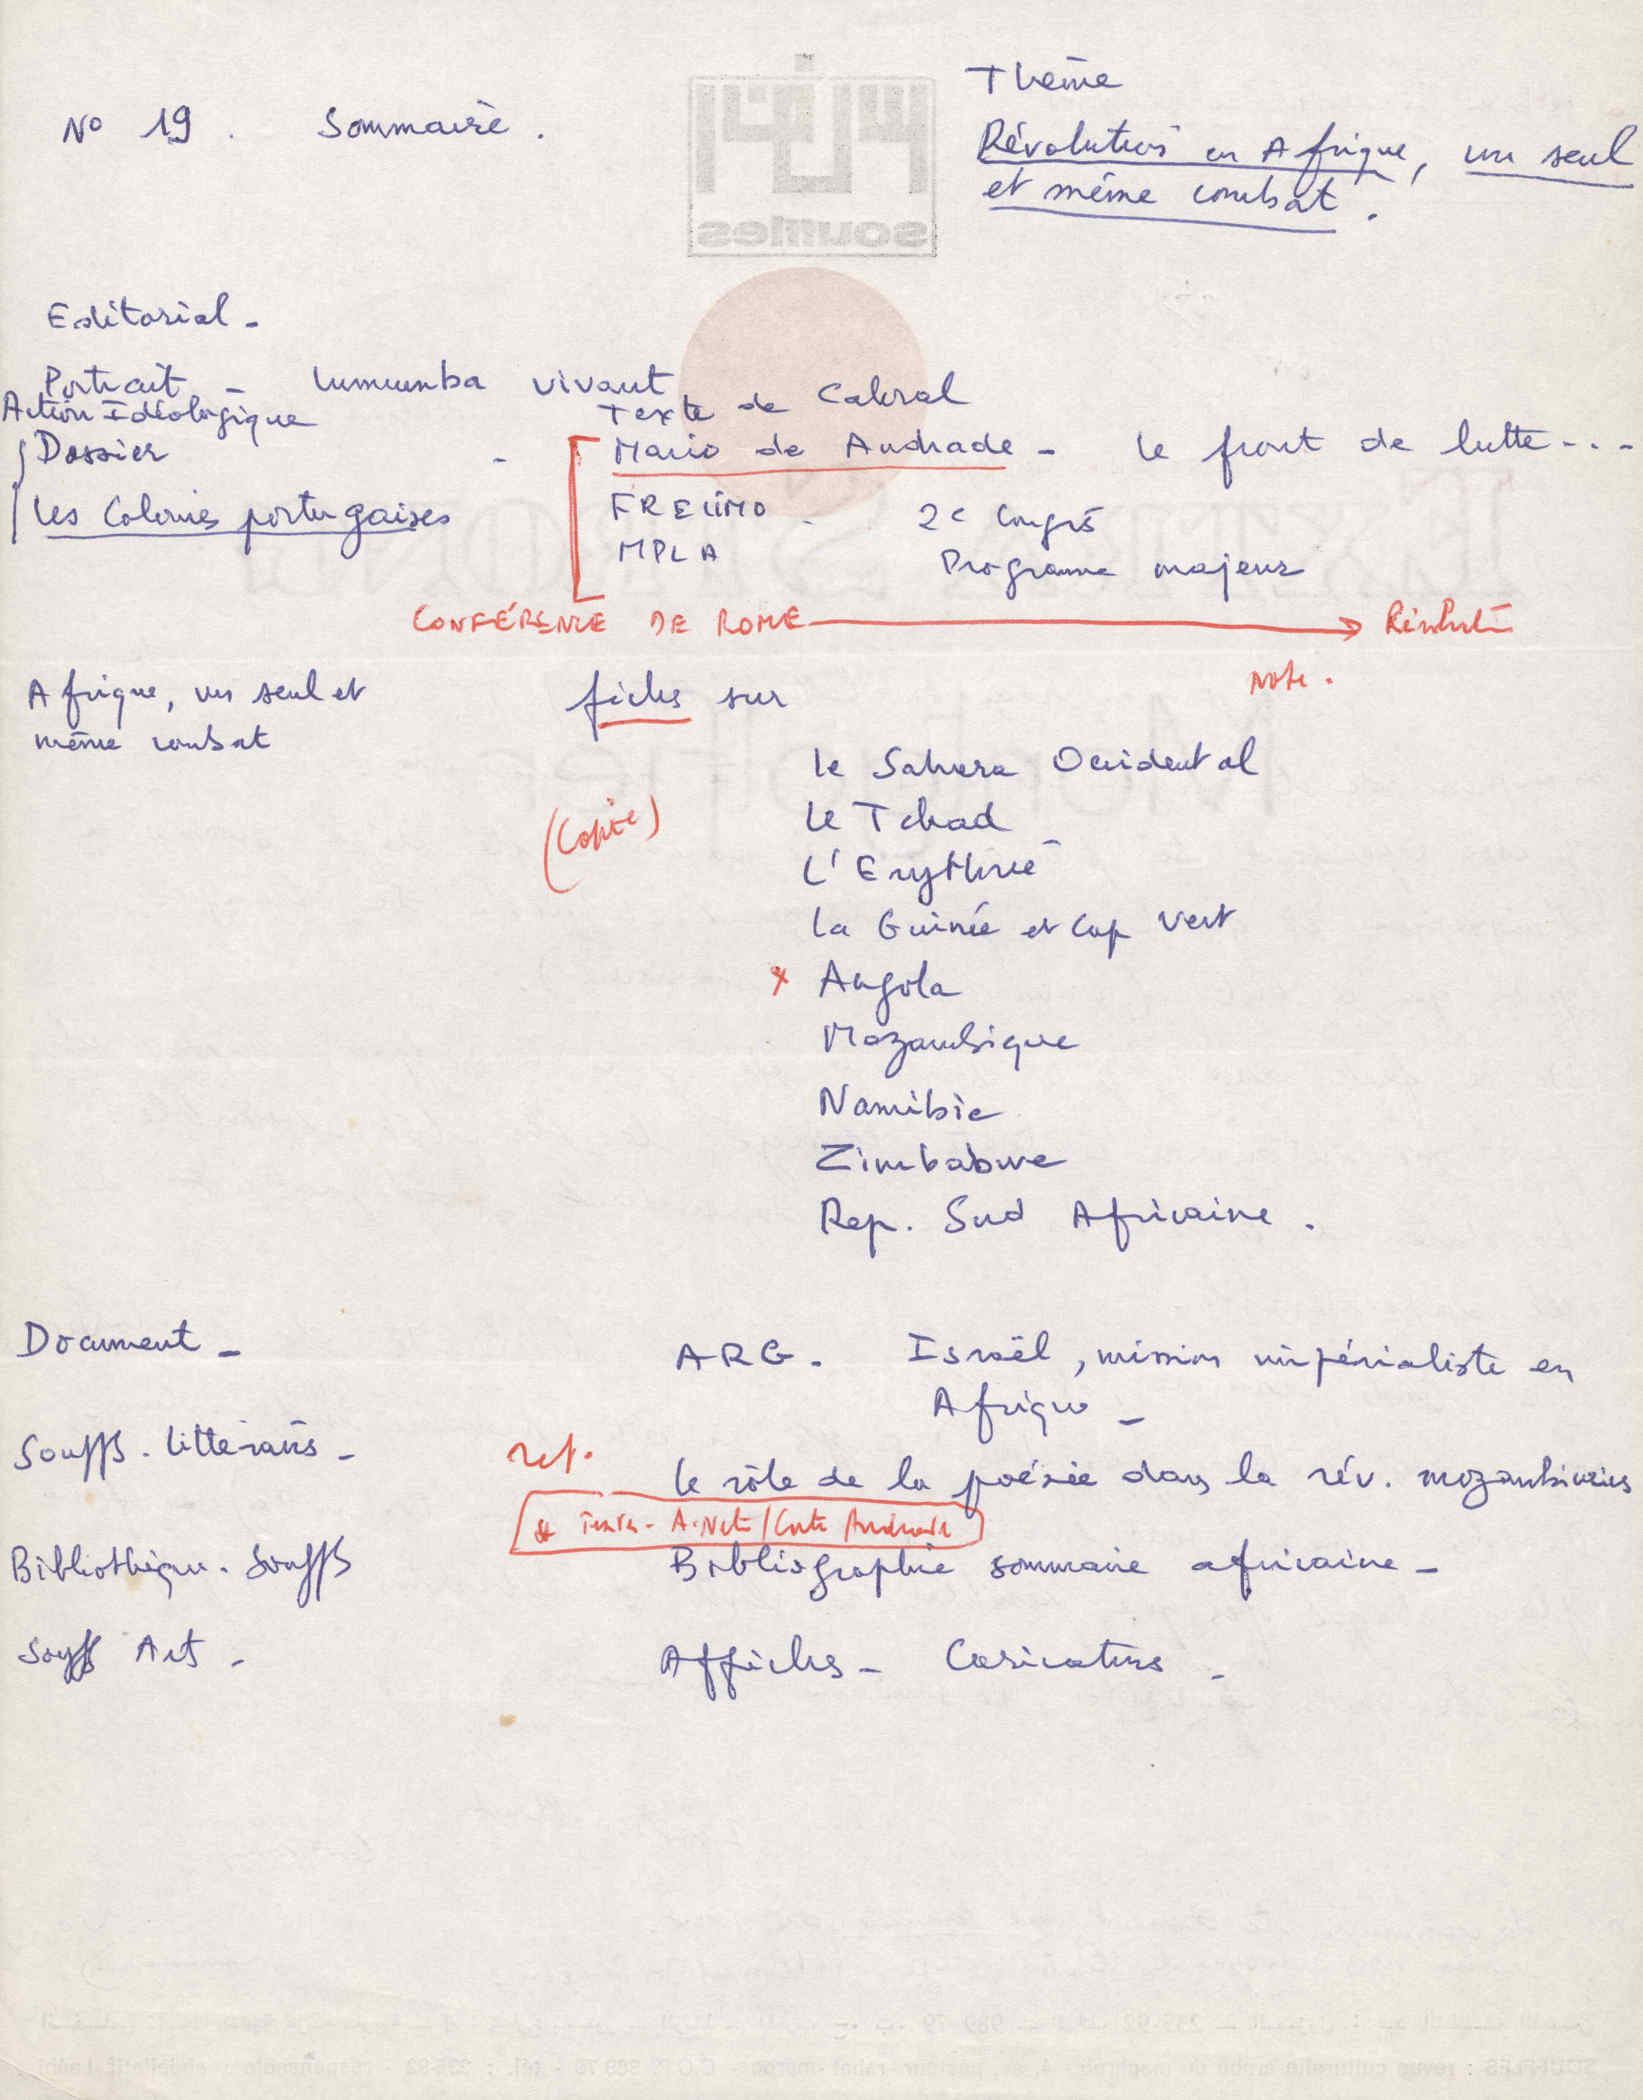 Thème
N° 19. Sommaire.
Révolution en Afrique, un seul
et même combat.
souffles
Editorial -
Portrait - Lumumba vivant
Action Idéologique
Texte de Cabral
Dossier - Mario de Andrade - le front de lutte ...
Les Colonies portugaises
FRELIMO - 2e Congrès
MPLA Programme majeur
CONFÉRENCE DE ROME Résolution
note.
Afrique, un seul et
même combat
fiches sur
le Sahara Occidental
(Copie)
Le Tchad
L'Erythrée
La Guinée et Cap Vert
x Angola
Mozambique
Namibie
Zimbabwe
Rep. Sud Africaine.
Document -
ARG. Israël, mission impérialiste en
Afrique -
Souffles. littéraires -
ref.
le rôle de la poésie dans la rév. mozambicaine
Textes - A. Neto / Andrade
Bibliothèque. Souffles
Bibliographie sommaire africaine -
Souffles Art -
Affiches - Caricatures -